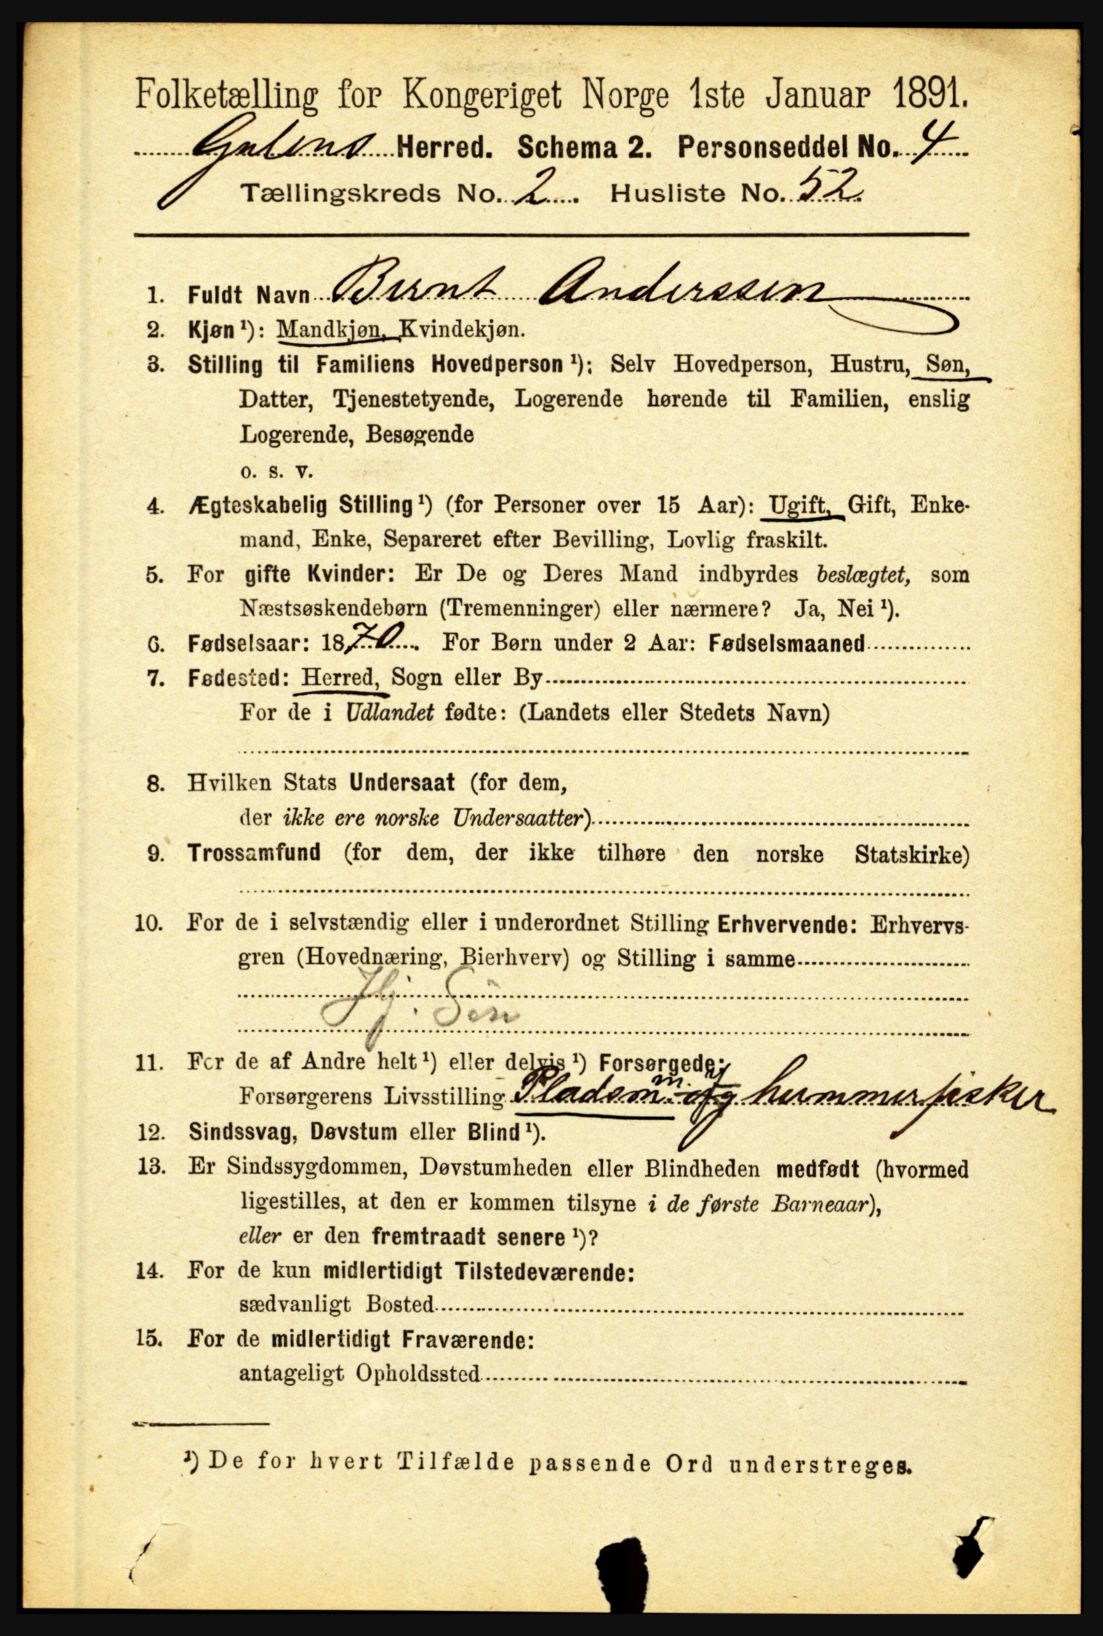 Folketælling for Kongeriget Norge 1ste Januar 1891.
Gulens Herred. Schema 2. Personseddel No. 4
Tællingskreds No. 2. Husliste No. 52.
1. Fuldt Navn Bernt Anderssen
2. Kjøn¹): Mandkjøn, Kvindekjøn.
3. Stilling til Familiens Hovedperson¹): Selv Hovedperson, Hustru, Søn,
Datter, Tjenestetyende, Logerende hørende til Familien, enslig
Logerende, Besøgende
o. s. v.
4. Ægteskabelig Stilling¹) (for Personer over 15 Aar): Ugift, Gift, Enke-
mand, Enke, Separeret efter Bevilling, Lovlig fraskilt.
5. For gifte Kvinder: Er De og Deres Mand indbyrdes beslægtet, som
Næstsøskendebørn (Tremenninger) eller nærmere? Ja, Nei¹).
6. Fødselsaar: 1870. For Børn under 2 Aar: Fødselsmaaned
7. Fødested: Herred, Sogn eller By
For de i Udlandet fødte: (Landets eller Stedets Navn)
8. Hvilken Stats Undersaat (for dem,
der ikke ere norske Undersaatter)
9. Trossamfund (for dem, der ikke tilhøre den norske Statskirke)
10. For de i selvstændig eller i underordnet Stilling Erhvervende: Erhvervs-
gren (Hovednæring, Bierhverv) og Stilling i samme
Hj. Søn
11. For de af Andre helt¹) eller delvis¹) Forsørgede:
Forsørgerens Livsstilling Pladsm. og hummerfisker
12. Sindssvag, Døvstum eller Blind¹).
13. Er Sindssygdommen, Døvstumheden eller Blindheden medfødt (hvormed
ligestilles, at den er kommen tilsyne i de første Barneaar),
eller er den fremtraadt senere¹)?
14. For de kun midlertidigt Tilstedeværende:
sædvanligt Bosted
15. For de midlertidigt Fraværende:
antageligt Opholdssted
¹) De for hvert Tilfælde passende Ord understreges.